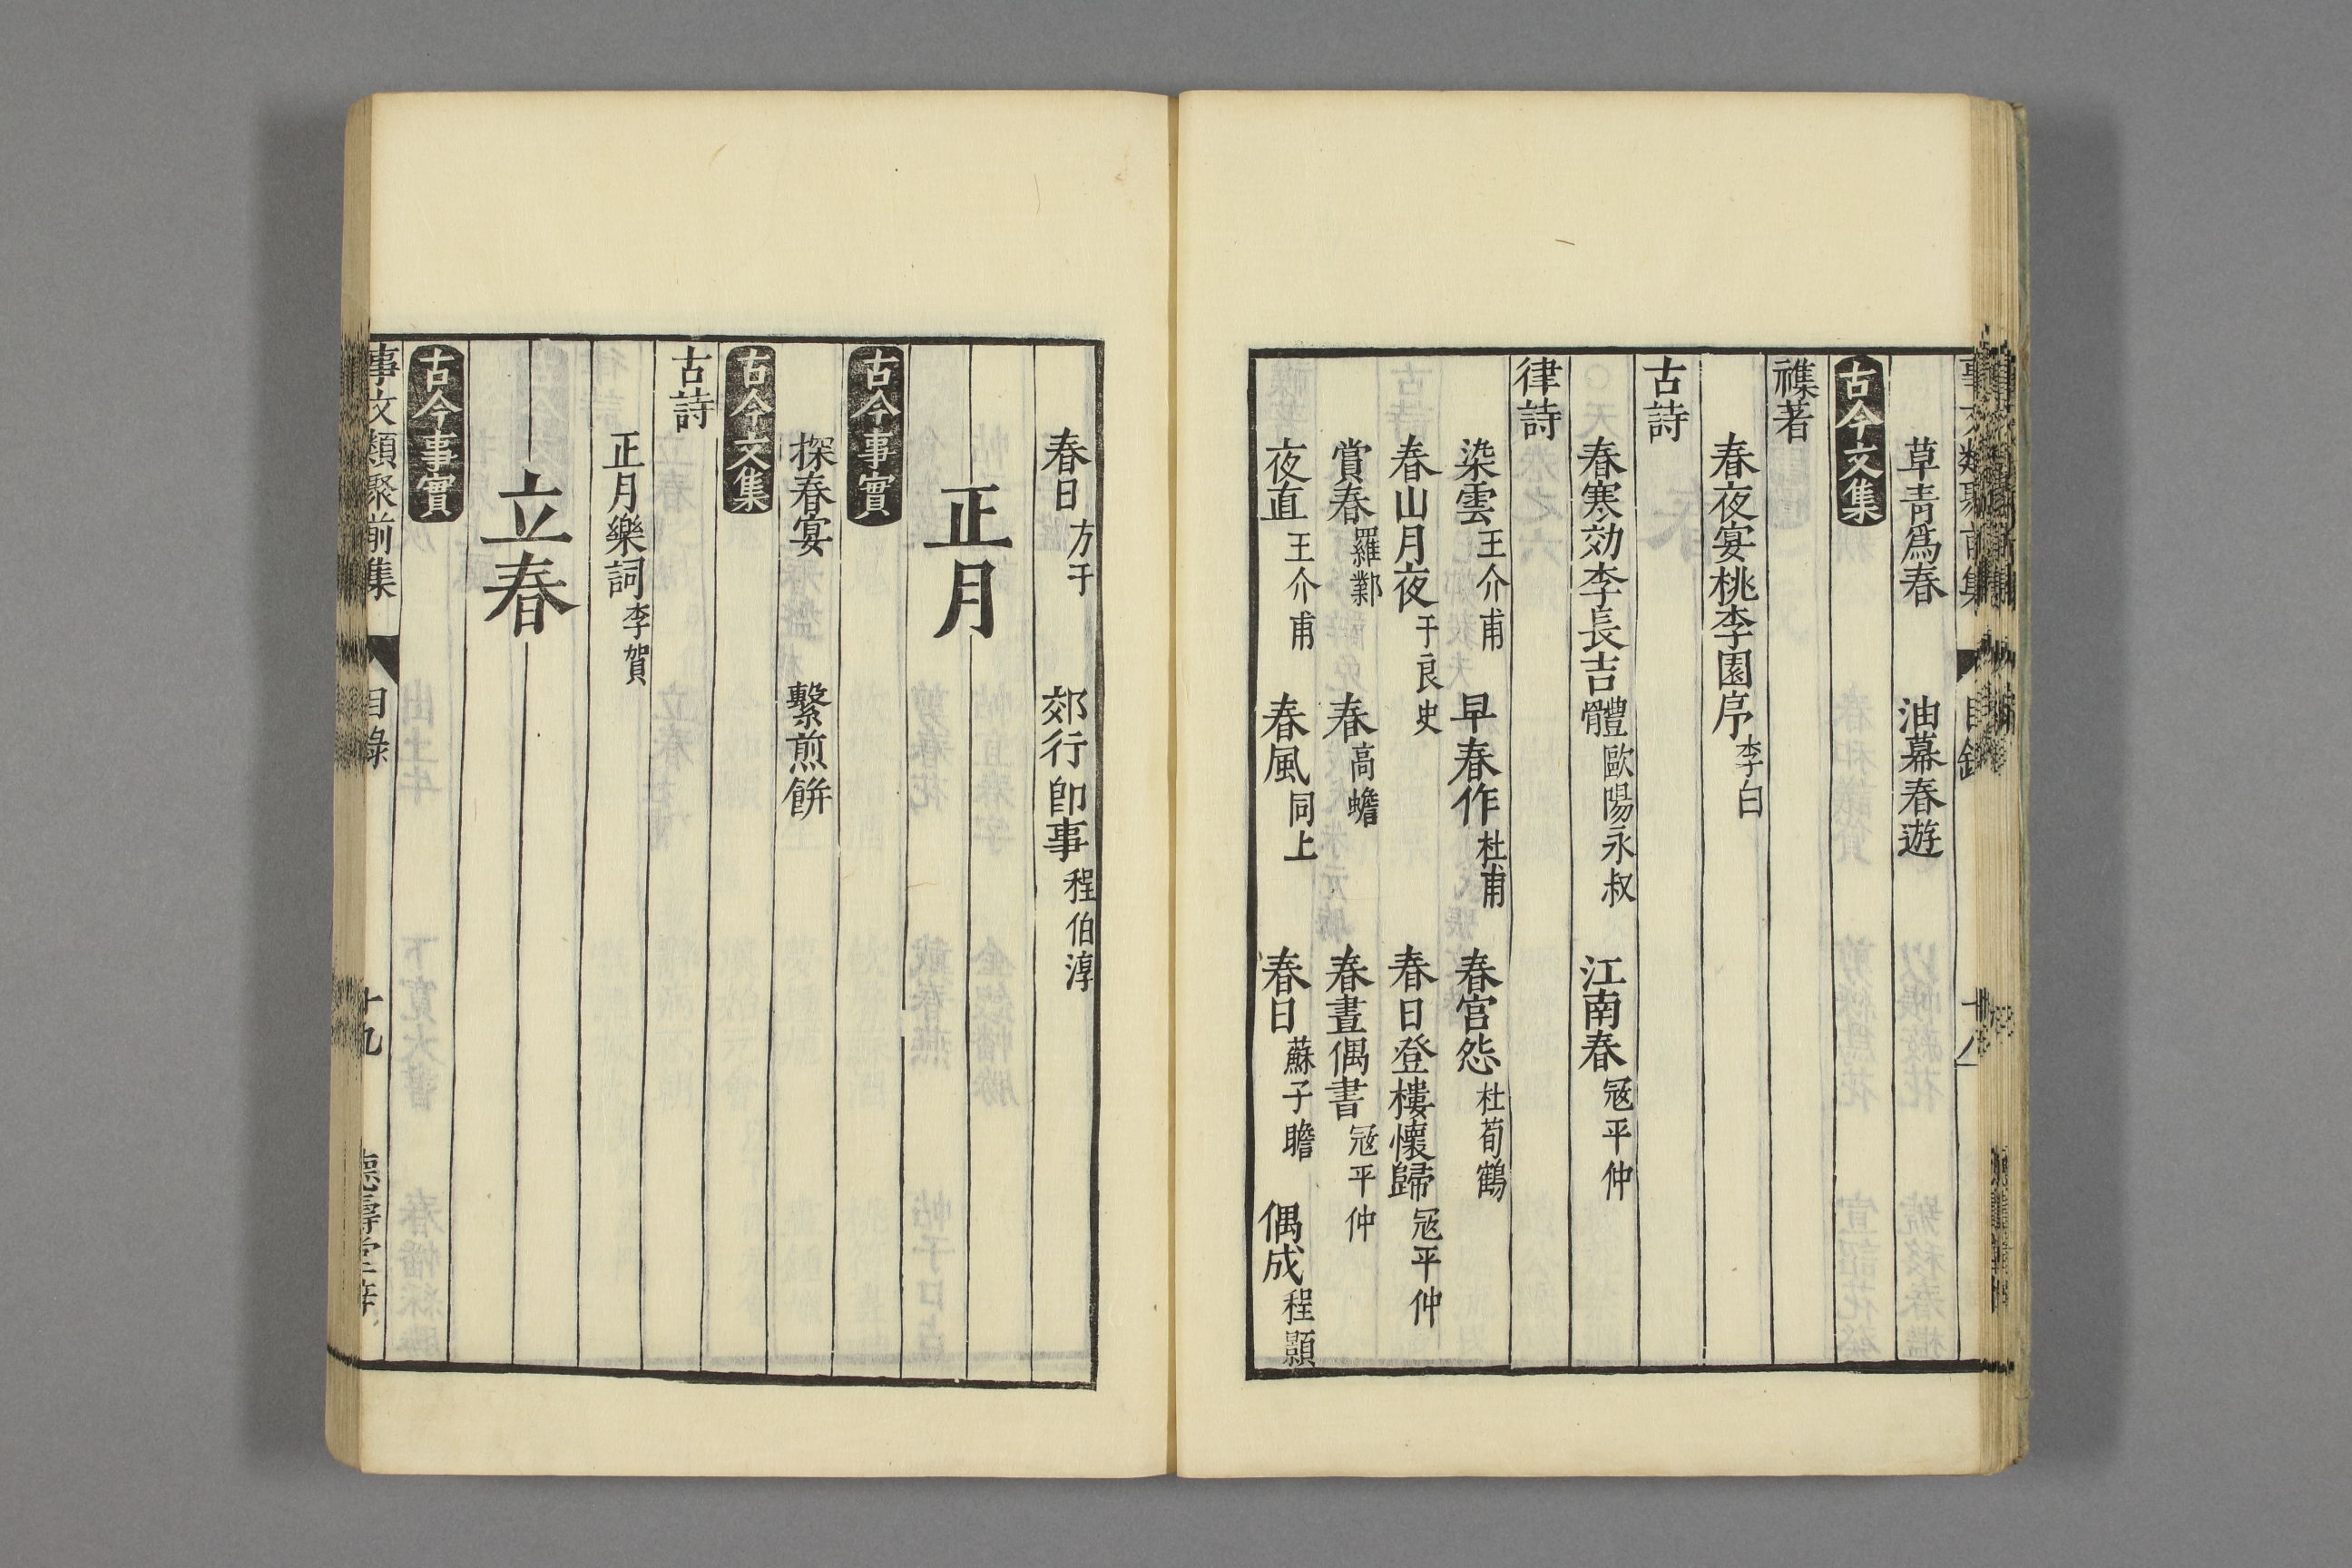 草青爲春　油幕春遊
古今文集
襍著
春夜宴桃李園序李白
古詩
春寒効李長吉體歐陽永叔　江南春冦平仲
律詩
染雲王介甫　早春作杜甫　春宫怨杜荀鶴
春山月夜于良史　春日登樓懷歸冦平仲
賞春羅鄴　春高蟾　春晝偶書冦平仲
夜直王介甫　春風同上　春日蘇子瞻　偶成程顥
春日方干　郊行卽事程伯淳
正月
古今事實
探春宴　繫煎餅
古今文集
古詩
正月樂詞李賀
立春
古今事實
事文類聚前集　目錄　十九　德壽堂梓